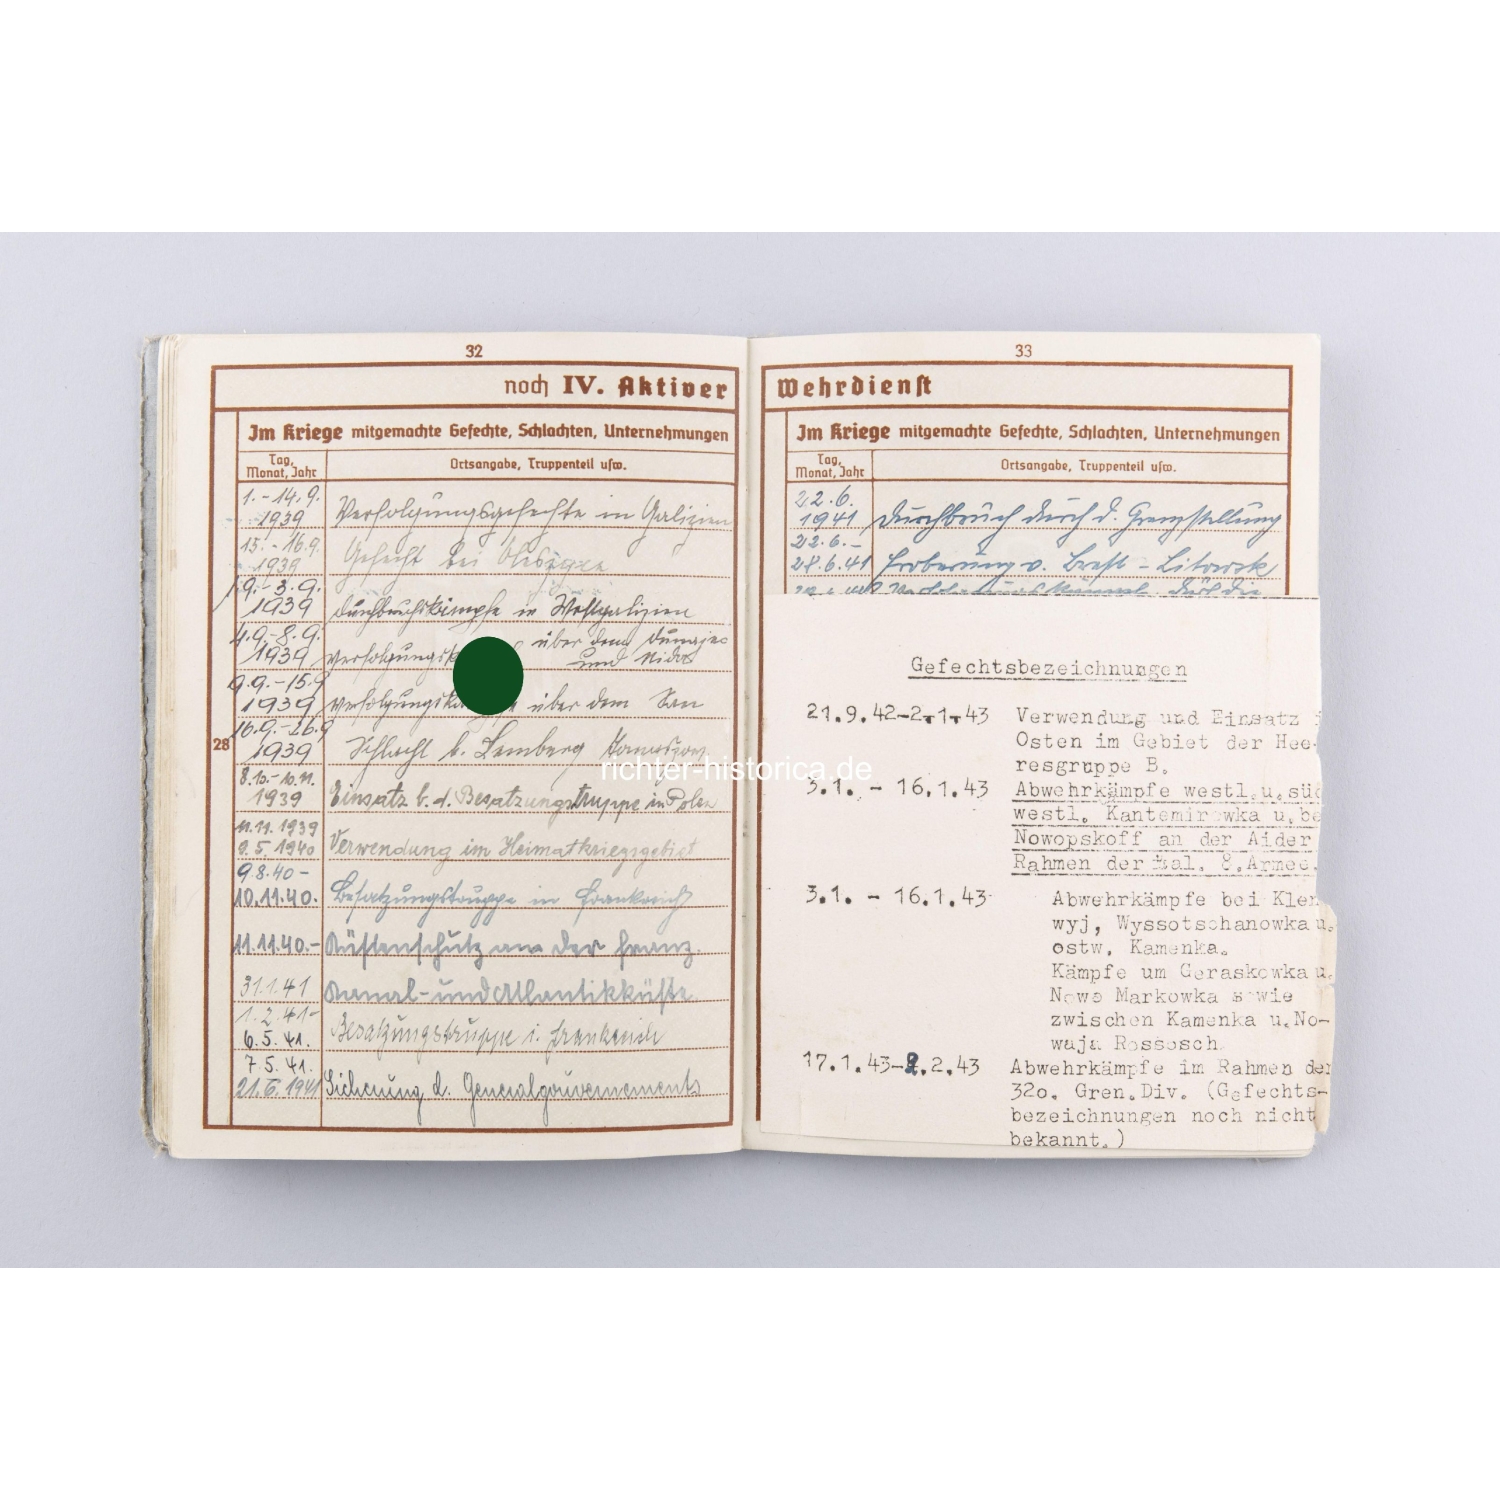 32
noch IV. Aktiver
Im Kriege mitgemachte Gefechte, Schlachten, Unternehmungen
Tag, Monat, Jahr
Ortsangabe, Truppenteil usw.
1. - 14.9. 1939 Verfolgungsgefechte in Galizien
15. - 16.9. 1939 Gefecht bei
1.9. - 3.9. 1939 Durchbruchskämpfe in Westgalizien
4.9. - 8.9. 1939 über dem Dunajec und Nida
9.9. - 15.9 1939 über dem San
28
16.9. - 26.9 1939 Schlacht b. Lemberg
8.10. - 10.11. 1939 Einsatz b. d. Besatzungstruppe in Polen
11.11.1939 9.5.1940 Verwendung im Heimatkriegsgebiet
9.8.40 - 10.11.40. Besatzungstruppe in Frankreich
11.11.40. - Küstenschutz an der franz.
31.1.41 Kanal- und Atlantikküste
1.2.41 - 6.5.41. Besatzungstruppe i. Frankreich
7.5.41. 21.6.1941 Sicherung d. Generalgouvernements
33
Wehrdienst
Im Kriege mitgemachte Gefechte, Schlachten, Unternehmungen
Tag, Monat, Jahr
Ortsangabe, Truppenteil usw.
22.6. 1941 Durchbruch durch d. Grenzstellung
22.6. - 28.6.41 Eroberung v. Brest - Litowsk
Gefechtsbezeichnungen
21.9.42-2.1.43 Verwendung und Einsatz i
Osten im Gebiet der Hee-
resgruppe B.
3.1. - 16.1.43 Abwehrkämpfe westl.u.süd
westl. Kantemirowka u.be
Nowopskoff an der Aider
Rahmen der ital. 8.Armee.
3.1. - 16.1.43 Abwehrkämpfe bei Klen
wyj, Wyssotschanowka u.
ostw. Kamenka.
Kämpfe um Geraskowka u.
Nowo Markowka sowie
zwischen Kamenka u.No-
waja Rossosch
17.1.43-2.2.43 Abwehrkämpfe im Rahmen der
32o. Gren.Div. (Gefechts-
bezeichnungen noch nicht
bekannt.)
richter-historica.de